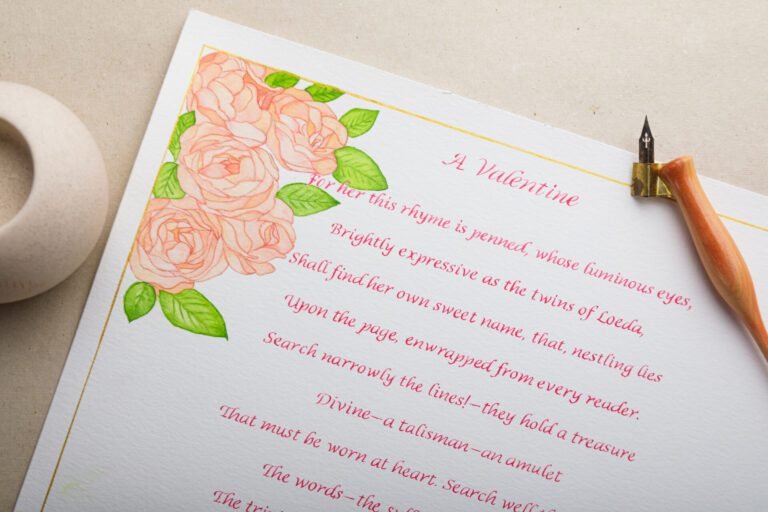 A Valentine
For her this rhyme is penned, whose luminous eyes,
Brightly expressive as the twins of Loeda,
Shall find her own sweet name, that, nestling lies
Upon the page, enwrapped from every reader.
Search narrowly the lines!—they hold a treasure
Divine—a talisman—an amulet
That must be worn at heart. Search well
The words—the
The